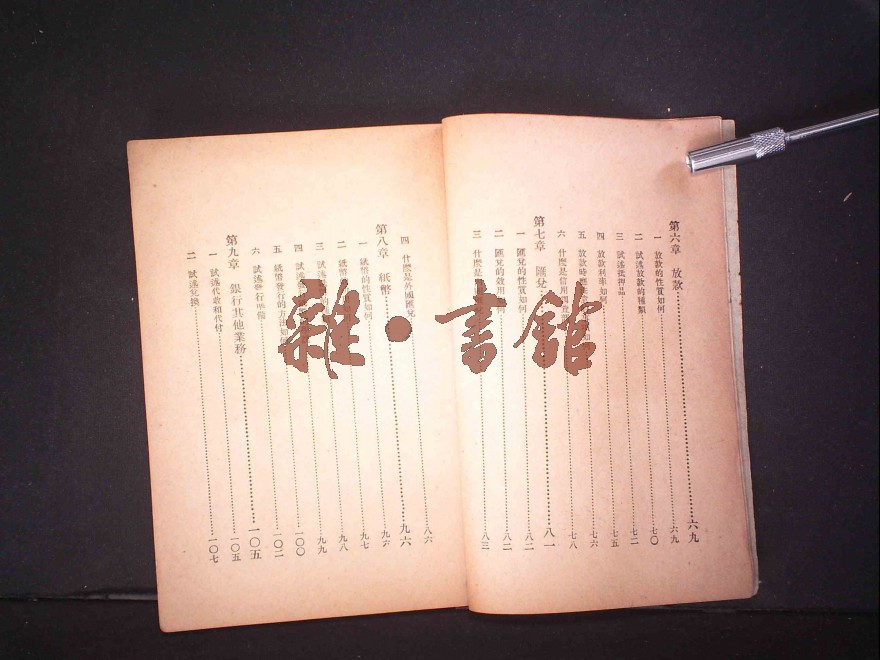 第六章 放款⋯⋯六九
一 放款的性質如何⋯⋯六九
二 試述放款的種類⋯⋯七〇
三 試述抵押品⋯⋯七二
四 放款利率如何⋯⋯七五
五 放款時應⋯⋯七六
六 什麼是信用調查⋯⋯七八
第七章 匯兌⋯⋯八一
一 匯兌的性質如何⋯⋯八二
二 匯兌的效用⋯⋯八二
三 什麼是⋯⋯八三
四 什麼是外國匯兌⋯⋯八六
第八章 紙幣⋯⋯九六
一 紙幣的性質如何⋯⋯九六
二 紙幣⋯⋯九七
三 試述⋯⋯九八
四 試述⋯⋯九九
五 紙幣發行的方法如何⋯⋯一〇〇
六 試述發行準備⋯⋯一〇二
第九章 銀行其他業務⋯⋯一〇五
一 試述代收和代付⋯⋯一〇五
二 試述兌換⋯⋯一〇七
雜·書館